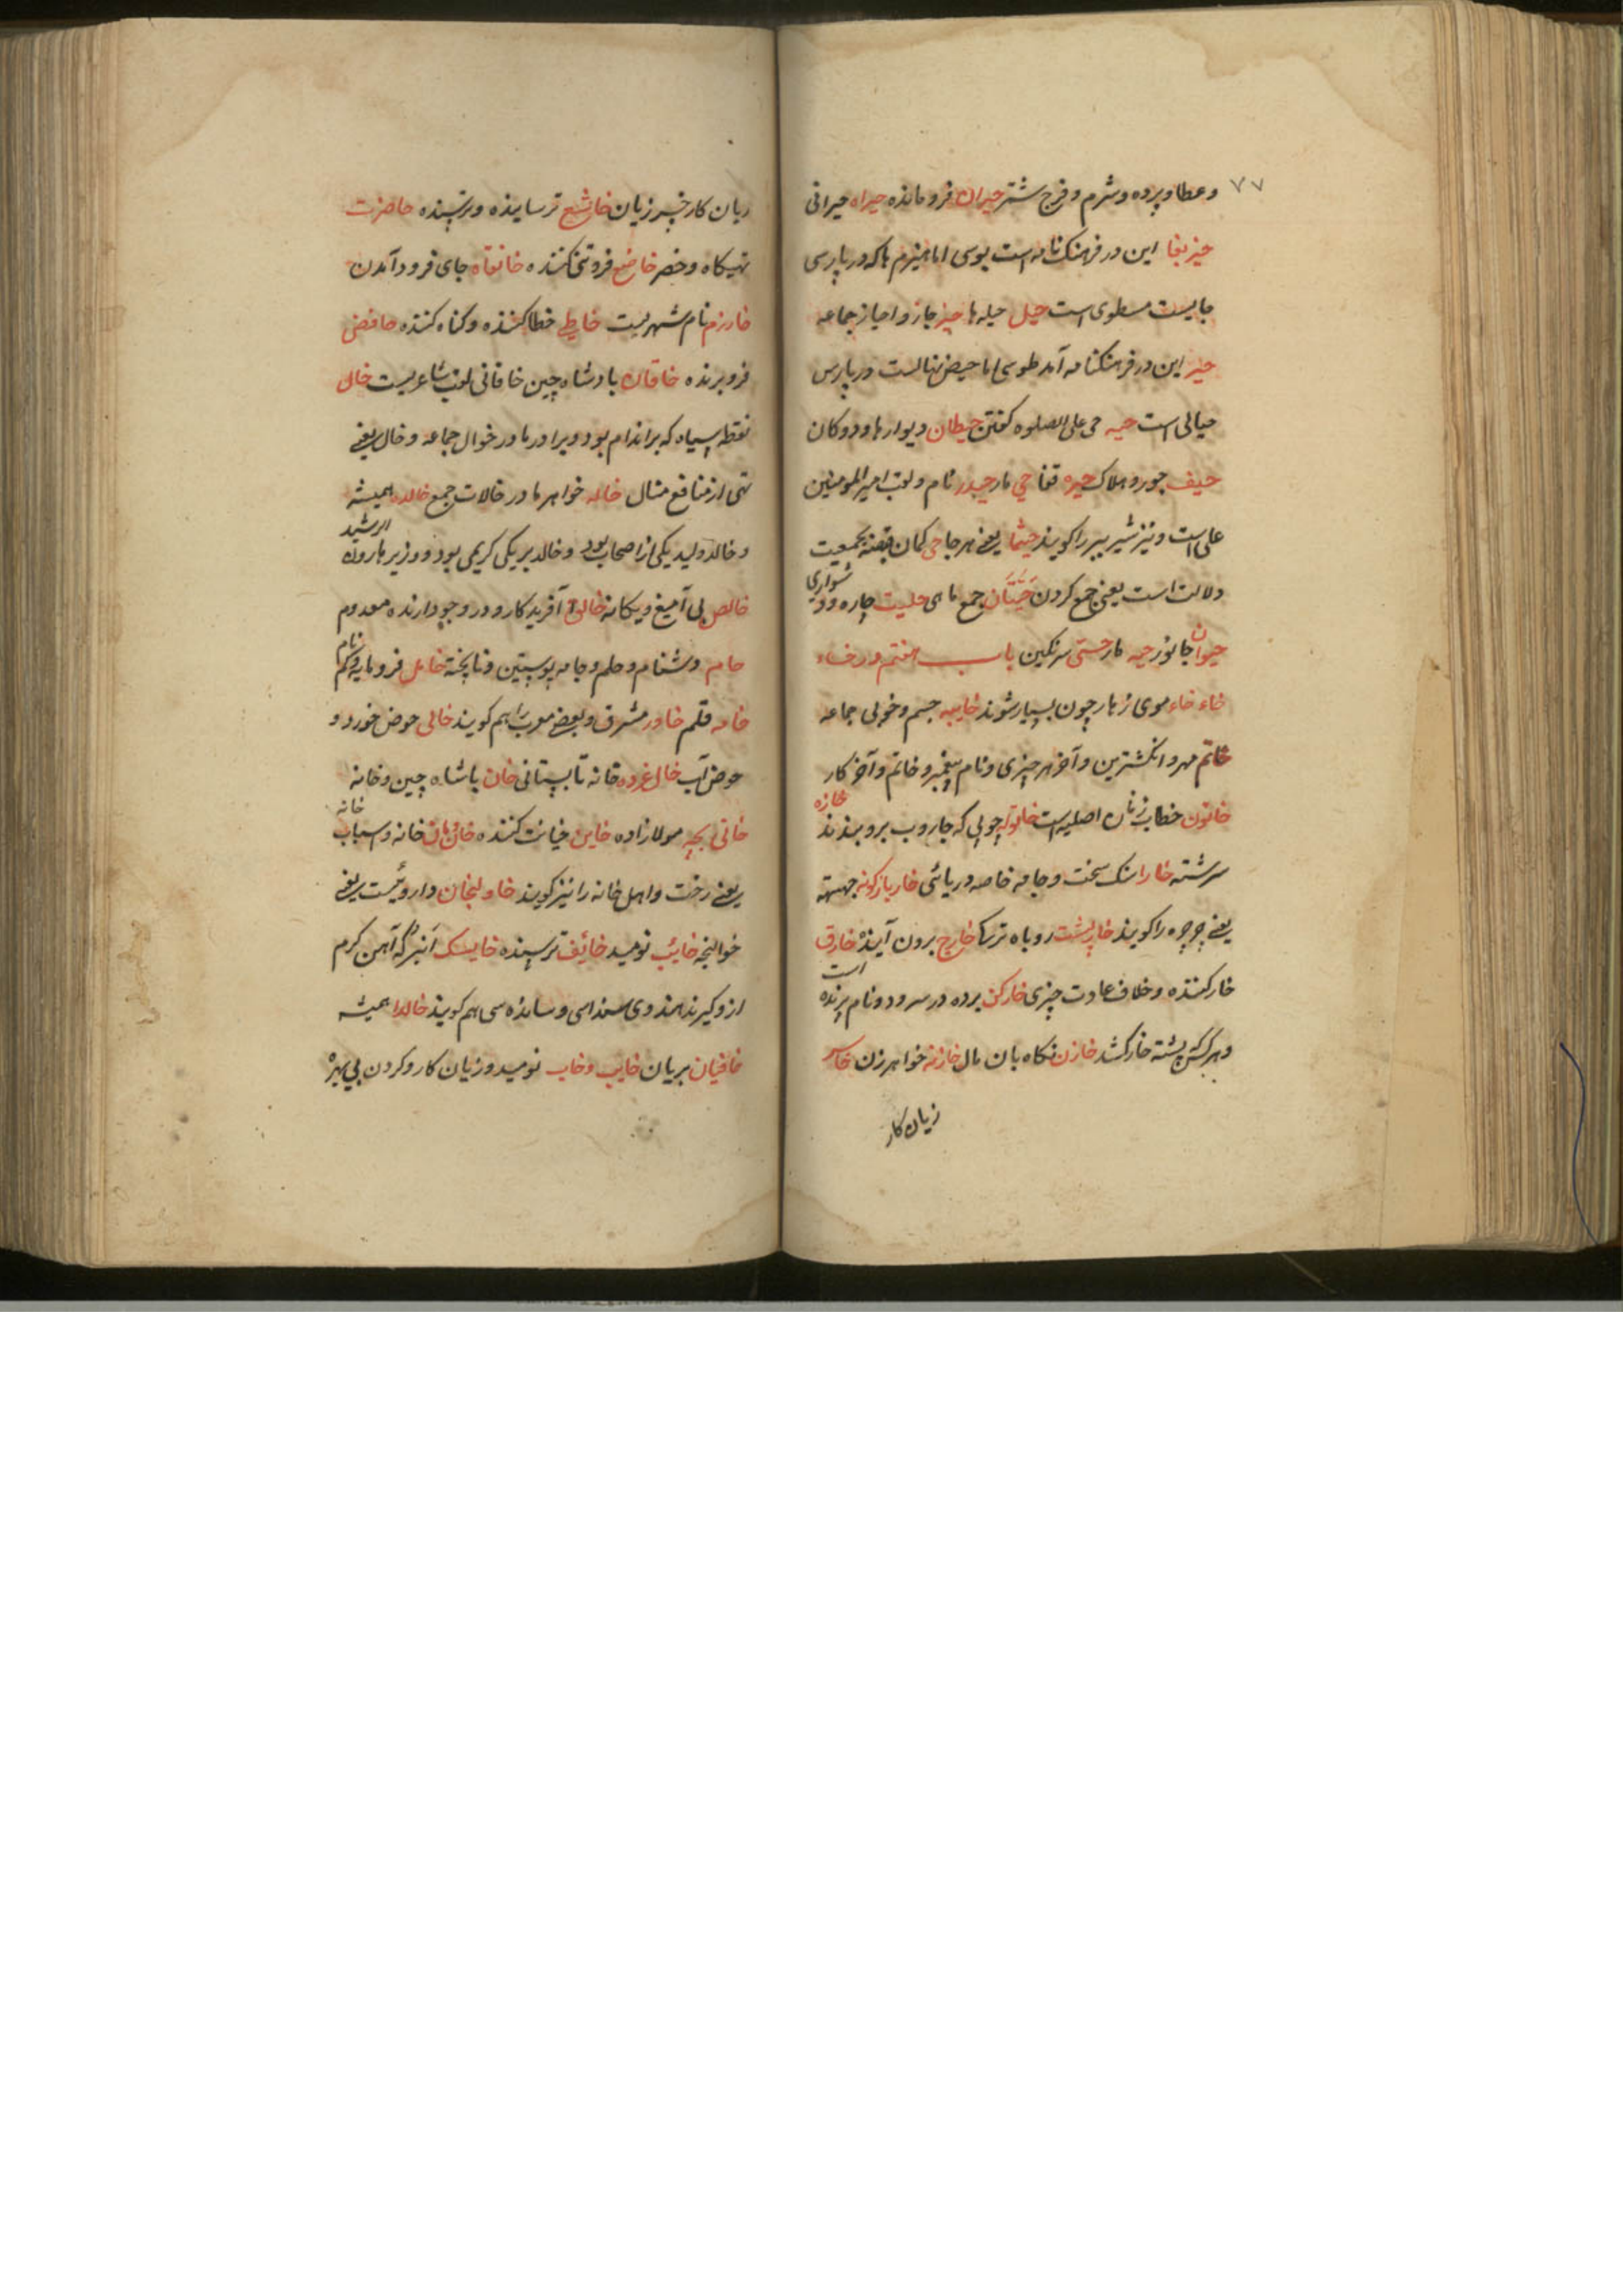 ۷۷
وعطا وپرده وشرم وفرج شتر حیران فرومانده حیراه حیرانی
این در فرهنک نامه است یوسی اما هیزم ها که در پارسی
جایست مسطوی است حیل حیله ها حیز جاز واحیاز جماعه
حیز این در فرهنکنامه آمد طوسی اما حیض نهالست در پارس
حیالی است حیه حی علی الصلوه کفتن حیطان دیوارها ودوکان
حیف جور وهلاک حیره قفا حی مار حیدر نام ولقب امیر المومنین
علی است ونیز شیر ببر را کویند حیثما یعنی هر جا حی کمان بجمعیت
دلالت است یعنی جمع کردن حیتان جمع ماهی حلیت چاره ود شواری
حیوان جانور حیه مار حستی سرنکین باب هفتم در خاء
خاء خاء موی زهار چون بسیار شوند خابیه جسم وخوبی جماعه
خاتم مهر وانکشترین وآخر هر چیزی ونام پیغمبر وخاتم وآخر کار
خاتون خطاب زنان اصلیست خاتوله چوبی که جاروب بروبندند خازه
سرشته خارا سنک سخت وجامه خاصه دریائی خار بازکونه جهسته
یعنی چرچره را کویند خارپشت روباه ترکا خارج برون آینده خارق
خارکننده وخلاف عادت چیزی خارکن پرده در سرود ونام پرنده است
وهر کس پشته خار کشد خازن نکاه بان مال خازنه خواهر زن خاسر
زیان کار
زیان کار خسر زیان خاشع ترساینده وترسنده خاصرت
تهیکاه وخصر خاضع فروتنی کننده خانقاه جای فرود آمدن
خارزم نام شهریست خاطی خطا کننده وکناه کننده خافض
فروبرنده خاقان پادشاه چین خاقانی لقب شاعریست خال
نقطه سیاه که بر اندام بود وبرادر مادر خوال جماعه وخال یعنی
تهی از منافع مثال خاله خواهر مادر خالات جمع خالده همیشه
وخالد ولید یکی از اصحاب بود وخالد برمکی کریمی بود ووزیر هارون الرشید
خالص بی آمیغ ویکانه خالق آفریدکار ودر وجود آرنده معدوم
خام دشنام وحلم وجامه پوستین وناپخته خامل فرومایه وکم نام
خامه قلم خاور مشرق وبعضی مغرب را هم کویند خالی حوض خورد و
حوض آب خال غرده خانه تابستانی خان پاشاه چین وخانه
خانی بچه مولازاده خاین خیانت کننده خان مان خانه واسباب خانه
یعنی رخت واهل خانه را نیز کویند خاولنجان داروئیست یعنی
خوالنجه خائب نومید خائف ترسنده خایسک آنبر که آهن کرم
از وکیرند هندوی سنداسی وساندهسی هم کویند خالدا همیشه
خافیان بریان خایب وخاب نومید وزیان کار وکردن بی بهره